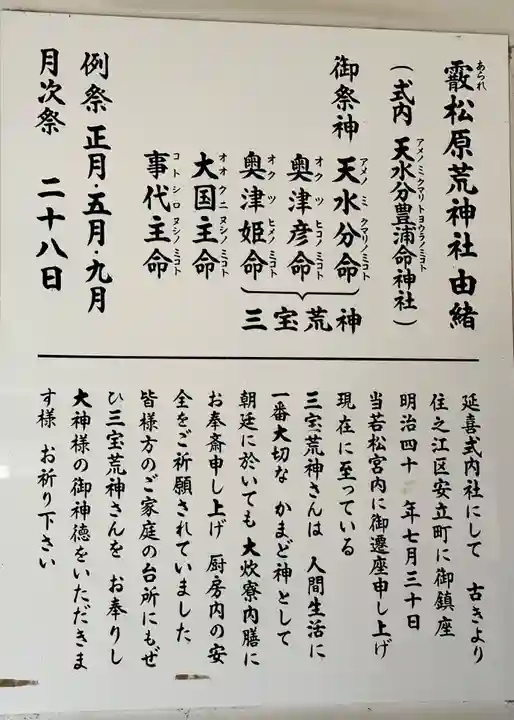 霰松原荒神社 由緒
あられ
(式内 天水分豊浦命神社)
アメノミクマリトヨウラノミコト
御祭神 天水分命
アメノミクマリノミコト
奥津彦命
オクツヒコノミコト
奥津姫命
オクツヒメノミコト
三宝荒神
大国主命
オオクニヌシノミコト
事代主命
コトシロヌシノミコト
例祭 正月・五月・九月
月次祭 二十八日
延喜式内社にして 古きより
住之江区安立町に御鎮座
明治四十 年七月三十日
当若松宮内に御遷座申し上げ
現在に至っている
三宝荒神さんは 人間生活に
一番大切な かまど神として
朝廷に於いても 大炊寮内膳に
お奉斎申し上げ 厨房内の安
全をご祈願されていました
皆様方のご家庭の台所にもぜ
ひ三宝荒神さんを お奉りし
大神様の御神徳をいただきま
す様 お祈り下さい